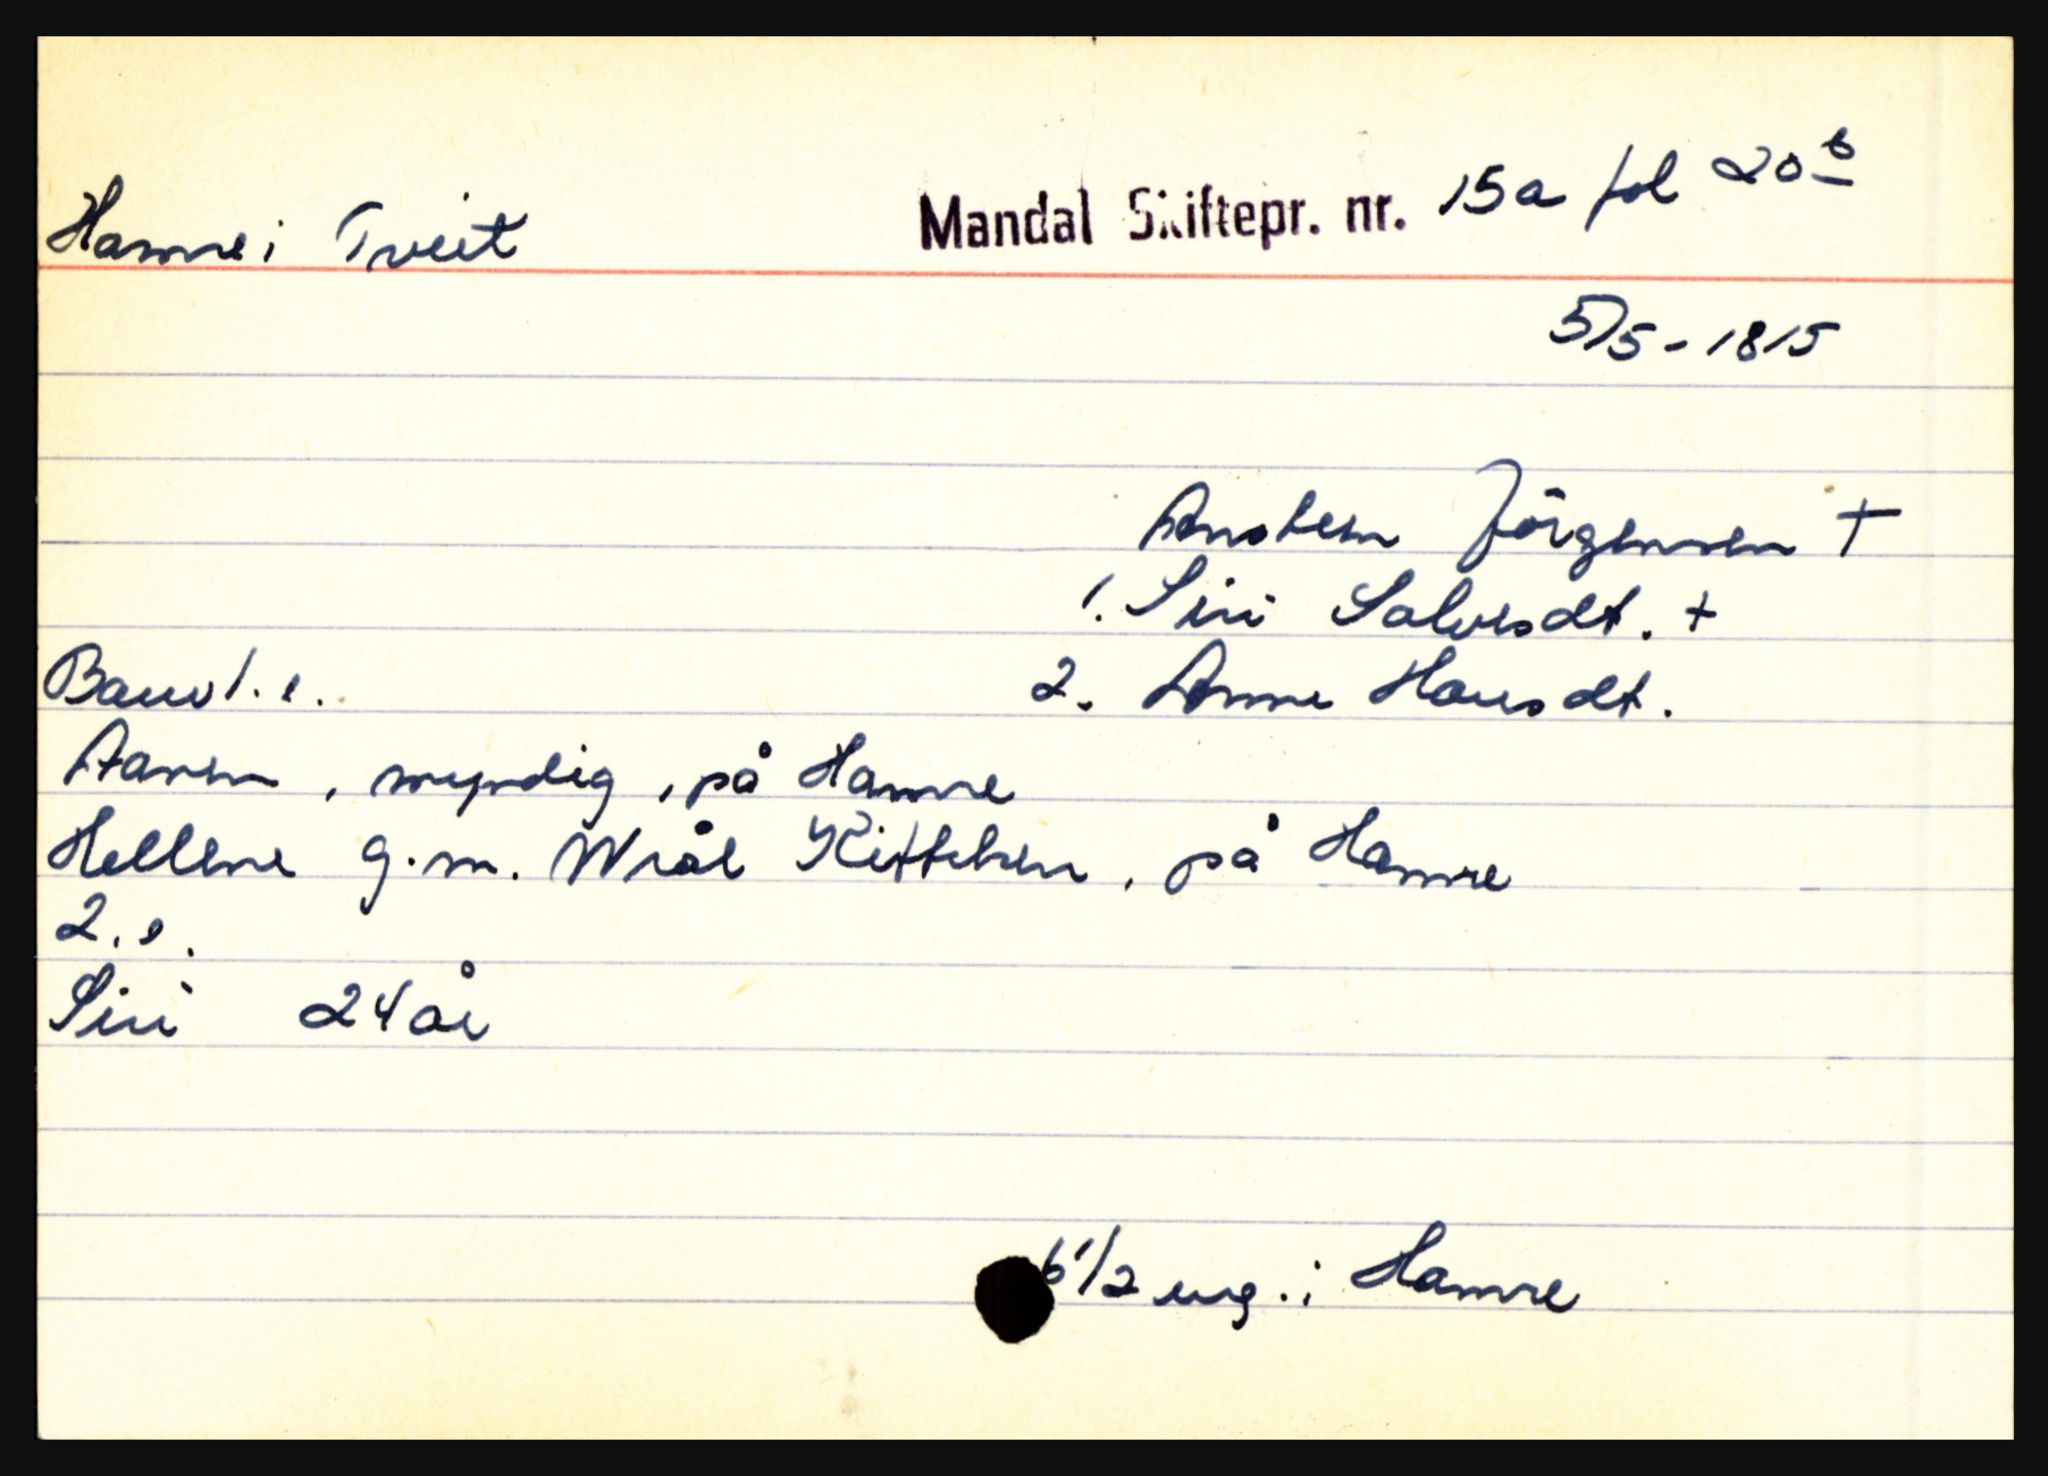 Hamre i Tveit Mandal Skiftepr. nr. 15a fol 20b
5/5-1815
Anstein Jörgensen +
1. Siri Salvesdt. +
Barn 1. e. 2. Anne Hansdt.
Aanen, myndig, på Hamre
Hellene g.m. Wrål Kittelsen, på Hamre
2. e.
Siri 24 år
6 1/2 eng. i Hamre